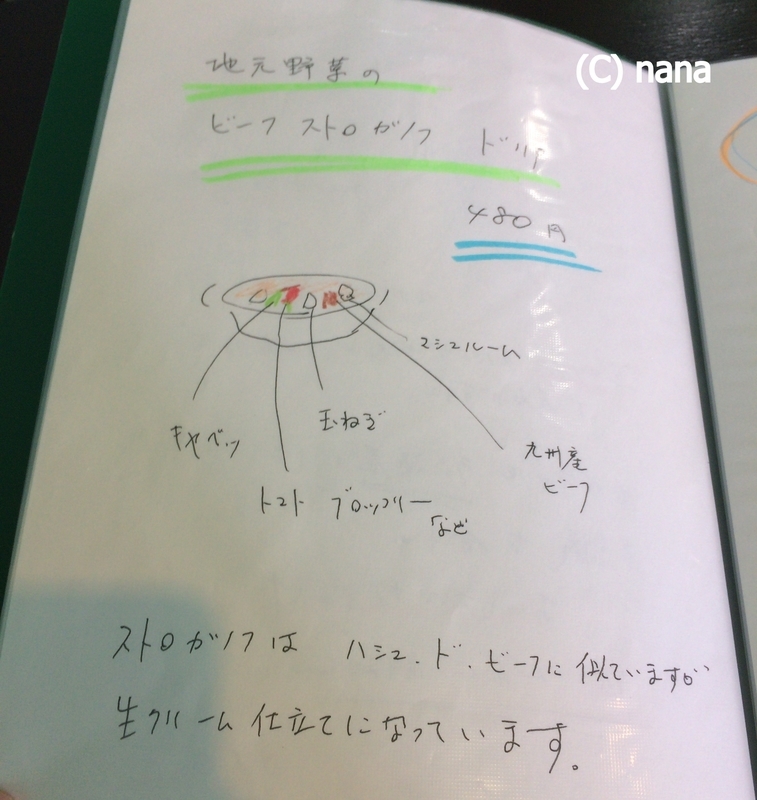 (C) nana
地元野菜の
ビーフ ストロガノフ ドリア
480円
マシュルーム
キャベツ
玉ねぎ
九州産
ビーフ
トマト ブロッコリー
など
ストロガノフは ハシュ.ド.ビーフに似ていますが
生クリーム仕立てになっています。